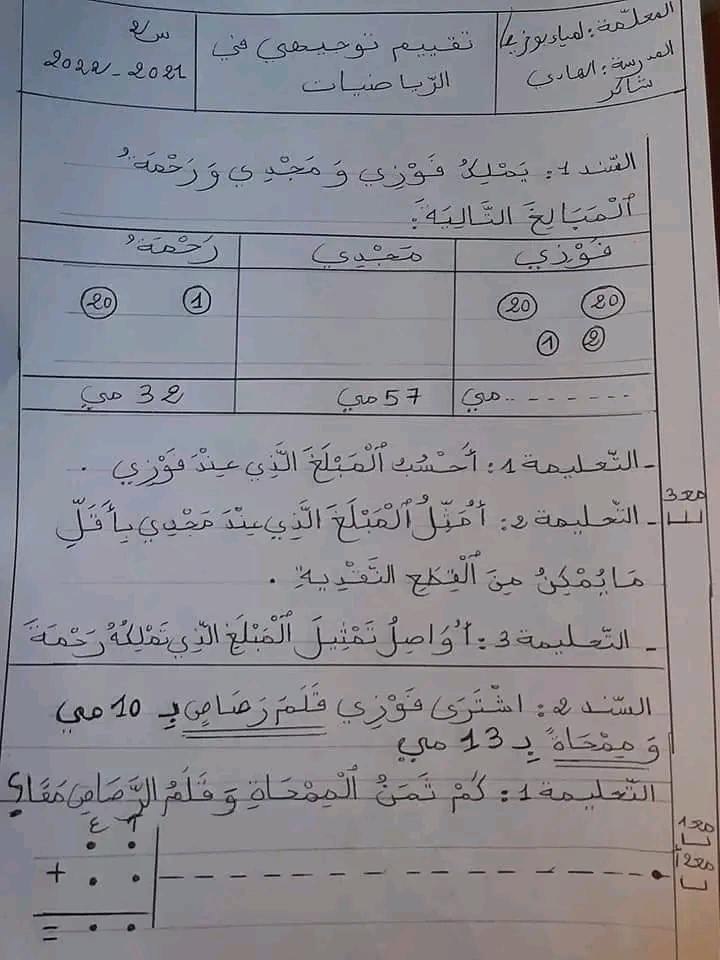 المعلّمة: لمياء بوزيد
المدرسة: الهادي
شاكر
تقييم توجيهي في
الرّياضيات
س2
2021-2022
السّند 1: يَمْلِكُ فَوْزِي وَ مَجْدِي وَ رَحْمَةُ
ٱلْمَبَالِغَ التَّالِيَةَ:
فَوْزِي مَجْدِي رَحْمَةُ
20 20 1 20
2 1
------- مي 57 مي 32 مي
- التّعليمة 1: أَحْسُبُ ٱلْمَبْلَغَ الَّذِي عِنْدَ فَوْزِي .
- التّعليمة 2: أُمَثِّلُ ٱلْمَبْلَغَ الَّذِي عِنْدَ مَجْدِي بِأَقَلِّ
مَا يُمْكِنُ مِنَ ٱلْقِطَعِ النَّقْدِيةِ .
- التّعليمة 3: أُوَاصِلُ تَمْثِيلَ ٱلْمَبْلَغِ الَّذِي تَمْلِكُهُ رَحْمَةُ
مع3
السّند 2: اشْتَرَى فَوْزِي قَلَمَ رَصَاصٍ بِـ 10 مي
وَ مِمْحَاةً بِـ 13 مي
التّعليمة 1: كَمْ ثَمَنُ ٱلْمِمْحَاةِ وَ قَلَمُ الرَّصَاصِ مَعًا؟
آ ع
+
=
مع1
مع2أ